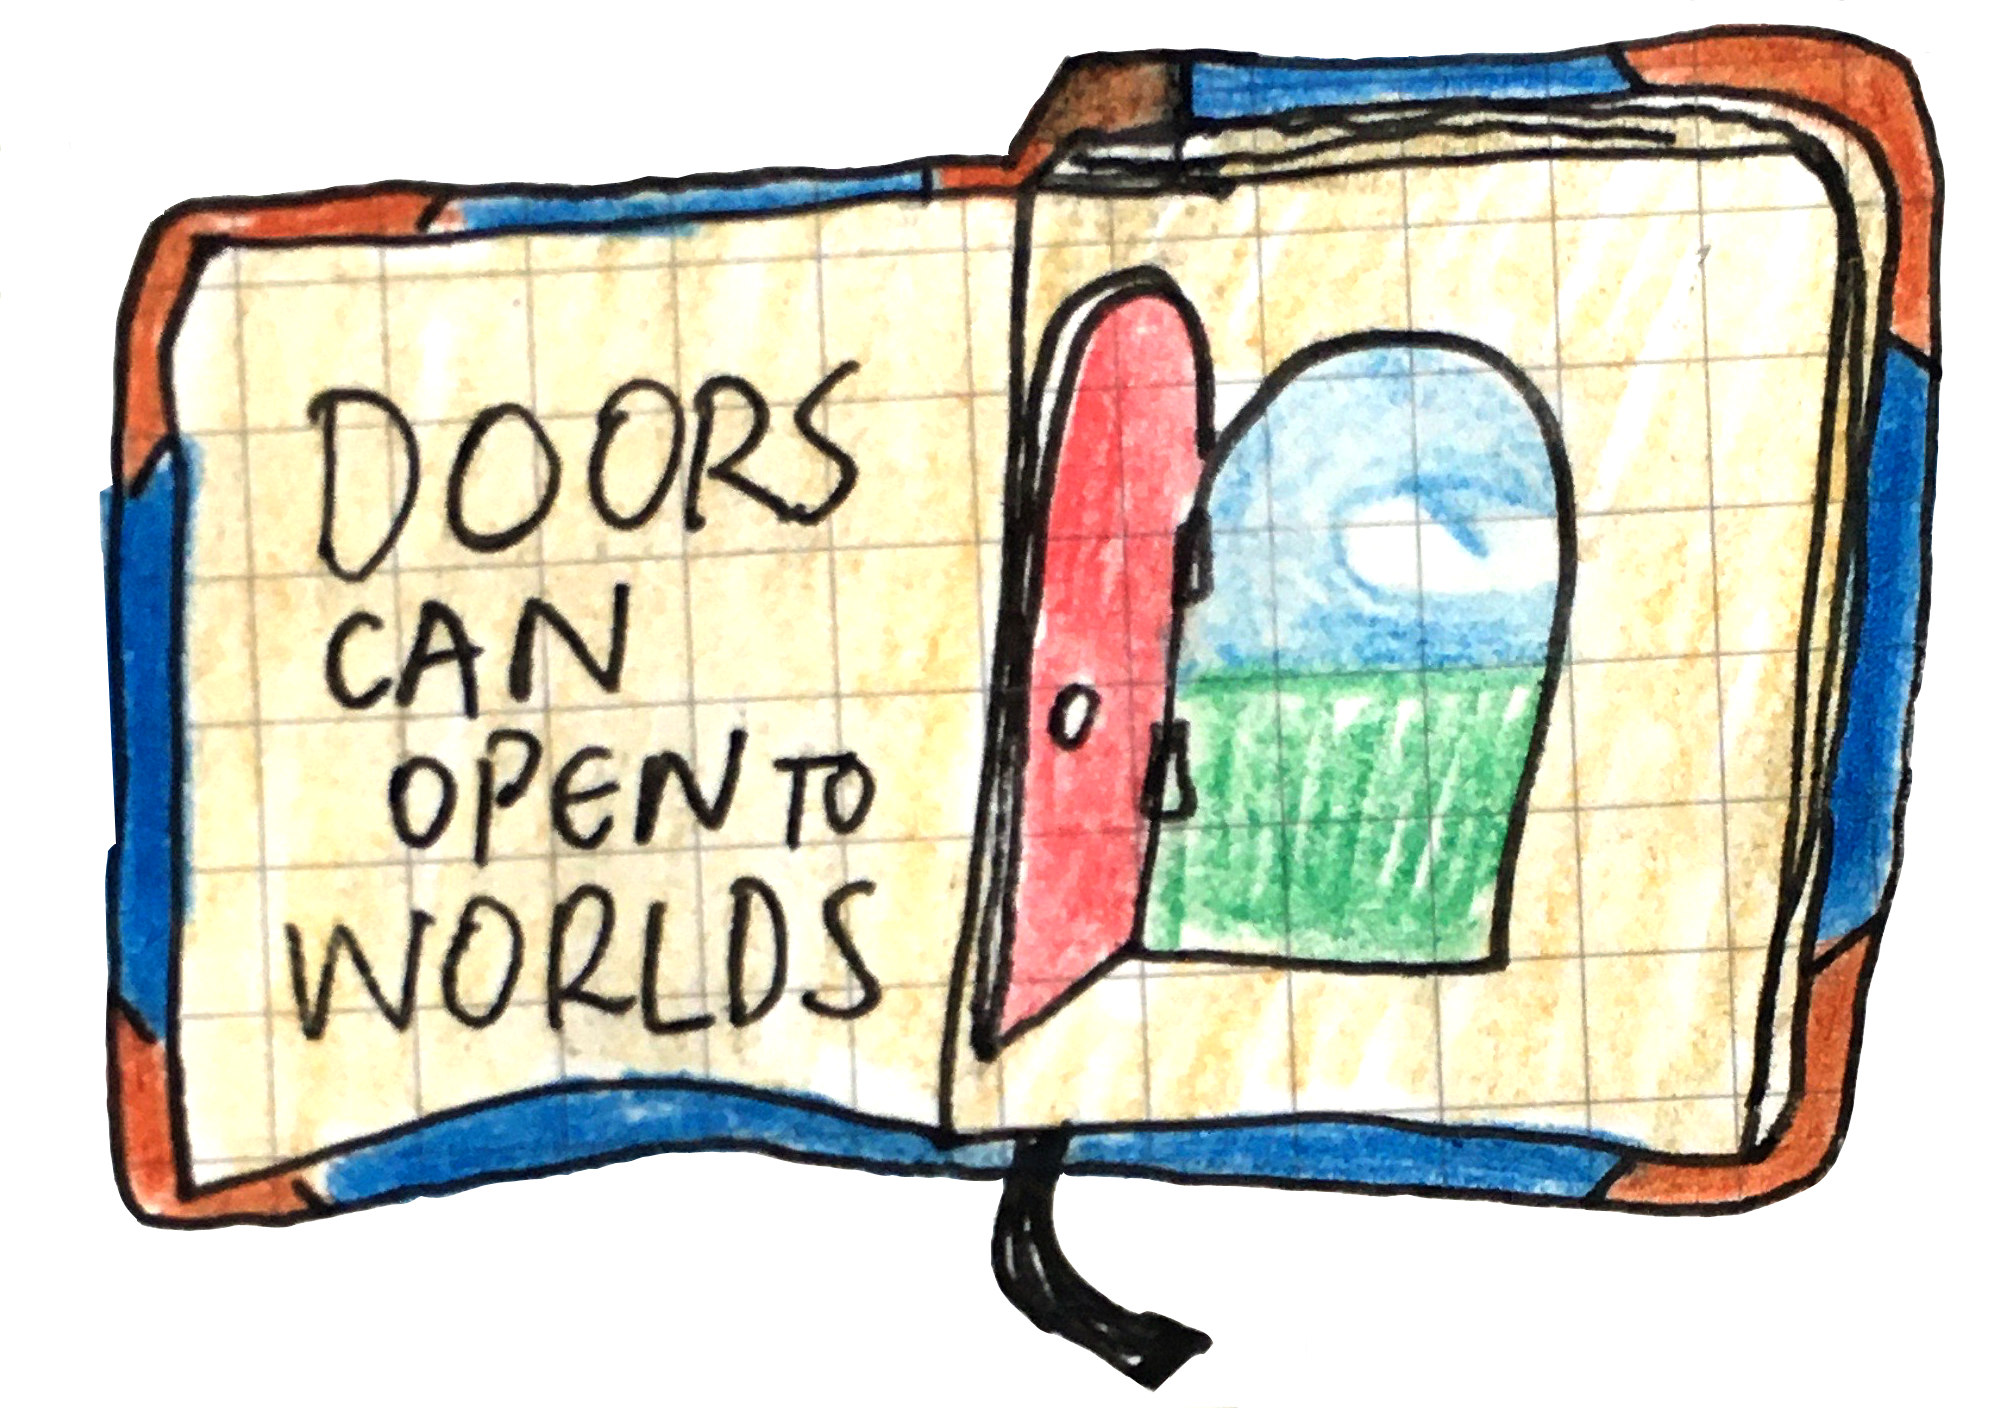 DOORS
CAN
OPEN TO
WORLDS